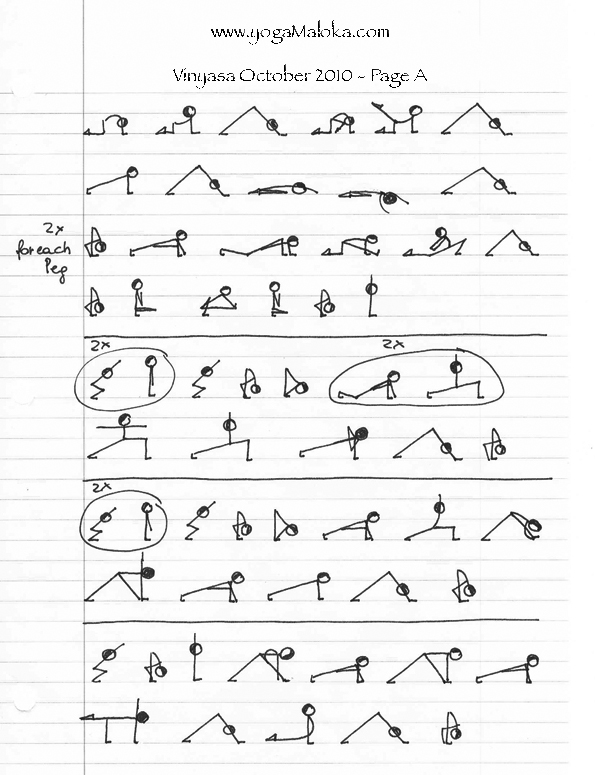 www.yogaMaloka.com
Vinyasa October 2010 - Page A
2x
for each
leg
2x
2x
2x